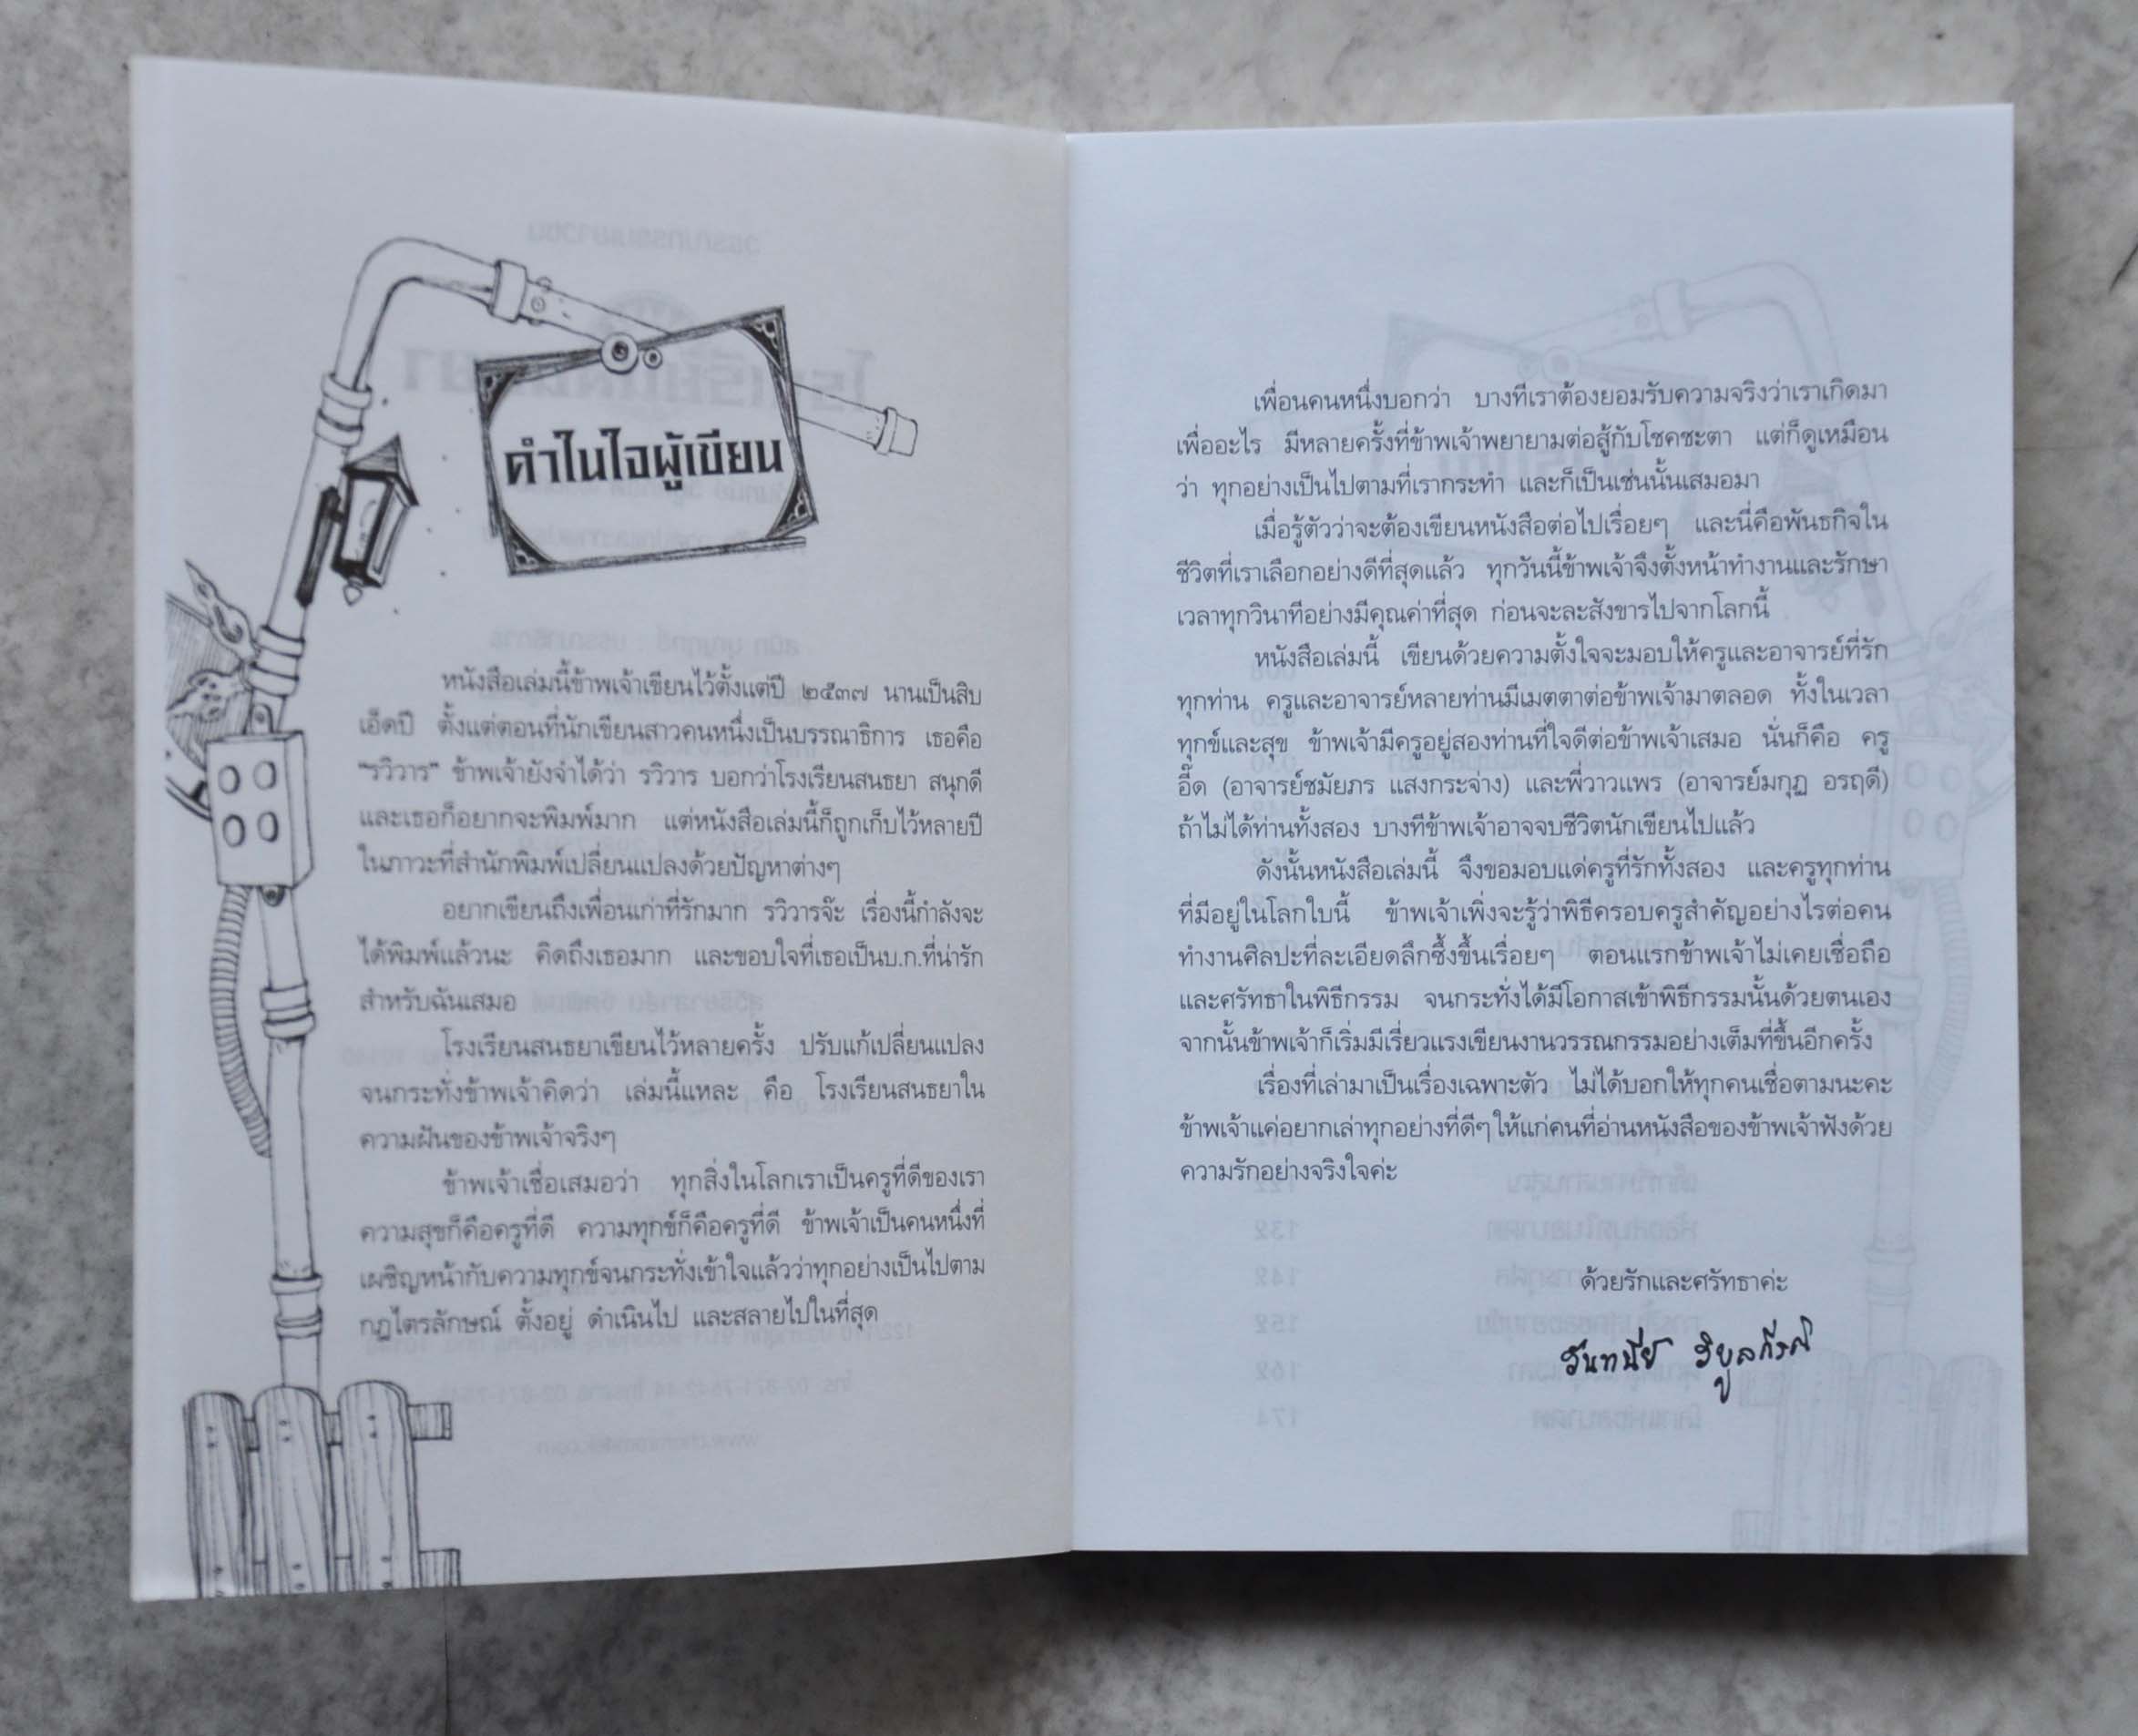 คำในใจผู้เขียน
หนังสือเล่มนี้ข้าพเจ้าเขียนไว้ตั้งแต่ปี ๒๕๓๗ นานเป็นสิบ
เอ็ดปี ตั้งแต่ตอนที่นักเขียนสาวคนหนึ่งเป็นบรรณาธิการ เธอคือ
"รวิวาร" ข้าพเจ้ายังจำได้ว่า รวิวาร บอกว่าโรงเรียนสนธยา สนุกดี
และเธอก็อยากจะพิมพ์มาก แต่หนังสือเล่มนี้ก็ถูกเก็บไว้หลายปี
ในภาวะที่สำนักพิมพ์เปลี่ยนแปลงด้วยปัญหาต่างๆ
อยากเขียนถึงเพื่อนเก่าที่รักมาก รวิวารจ๊ะ เรื่องนี้กำลังจะ
ได้พิมพ์แล้วนะ คิดถึงเธอมาก และขอบใจที่เธอเป็นบ.ก.ที่น่ารัก
สำหรับฉันเสมอ
โรงเรียนสนธยาเขียนไว้หลายครั้ง ปรับแก้เปลี่ยนแปลง
จนกระทั่งข้าพเจ้าคิดว่า เล่มนี้แหละ คือ โรงเรียนสนธยาใน
ความฝันของข้าพเจ้าจริงๆ
ข้าพเจ้าเชื่อเสมอว่า ทุกสิ่งในโลกเราเป็นครูที่ดีของเรา
ความสุขก็คือครูที่ดี ความทุกข์ก็คือครูที่ดี ข้าพเจ้าเป็นคนหนึ่งที่
เผชิญหน้ากับความทุกข์จนกระทั่งเข้าใจแล้วว่าทุกอย่างเป็นไปตาม
กฎไตรลักษณ์ ตั้งอยู่ ดำเนินไป และสลายไปในที่สุด
เพื่อนคนหนึ่งบอกว่า บางทีเราต้องยอมรับความจริงว่าเราเกิดมา
เพื่ออะไร มีหลายครั้งที่ข้าพเจ้าพยายามต่อสู้กับโชคชะตา แต่ก็ดูเหมือน
ว่า ทุกอย่างเป็นไปตามที่เรากระทำ และก็เป็นเช่นนั้นเสมอมา
เมื่อรู้ตัวว่าจะต้องเขียนหนังสือต่อไปเรื่อยๆ และนี่คือพันธกิจใน
ชีวิตที่เราเลือกอย่างดีที่สุดแล้ว ทุกวันนี้ข้าพเจ้าจึงตั้งหน้าทำงานและรักษา
เวลาทุกวินาทีอย่างมีคุณค่าที่สุด ก่อนจะละสังขารไปจากโลกนี้
หนังสือเล่มนี้ เขียนด้วยความตั้งใจจะมอบให้ครูและอาจารย์ที่รัก
ทุกท่าน ครูและอาจารย์หลายท่านมีเมตตาต่อข้าพเจ้ามาตลอด ทั้งในเวลา
ทุกข์และสุข ข้าพเจ้ามีครูอยู่สองท่านที่ใจดีต่อข้าพเจ้าเสมอ นั่นก็คือ ครู
อี๊ด (อาจารย์ชมัยภร แสงกระจ่าง) และพี่วาวแพร (อาจารย์มกุฏ อรฤดี)
ถ้าไม่ได้ท่านทั้งสอง บางทีข้าพเจ้าอาจจบชีวิตนักเขียนไปแล้ว
ดังนั้นหนังสือเล่มนี้ จึงขอมอบแด่ครูที่รักทั้งสอง และครูทุกท่าน
ที่มีอยู่ในโลกใบนี้ ข้าพเจ้าเพิ่งจะรู้ว่าพิธีครอบครูสำคัญอย่างไรต่อคน
ทำงานศิลปะที่ละเอียดลึกซึ้งขึ้นเรื่อยๆ ตอนแรกข้าพเจ้าไม่เคยเชื่อถือ
และศรัทธาในพิธีกรรม จนกระทั่งได้มีโอกาสเข้าพิธีกรรมนั้นด้วยตนเอง
จากนั้นข้าพเจ้าก็เริ่มมีเรี่ยวแรงเขียนงานวรรณกรรมอย่างเต็มที่ขึ้นอีกครั้ง
เรื่องที่เล่ามาเป็นเรื่องเฉพาะตัว ไม่ได้บอกให้ทุกคนเชื่อตามนะคะ
ข้าพเจ้าแค่อยากเล่าทุกอย่างที่ดีๆ ให้แก่คนที่อ่านหนังสือของข้าพเจ้าฟังด้วย
ความรักอย่างจริงใจค่ะ
ด้วยรักและศรัทธาค่ะ
วันทนีย์ วิบูลกีรติ